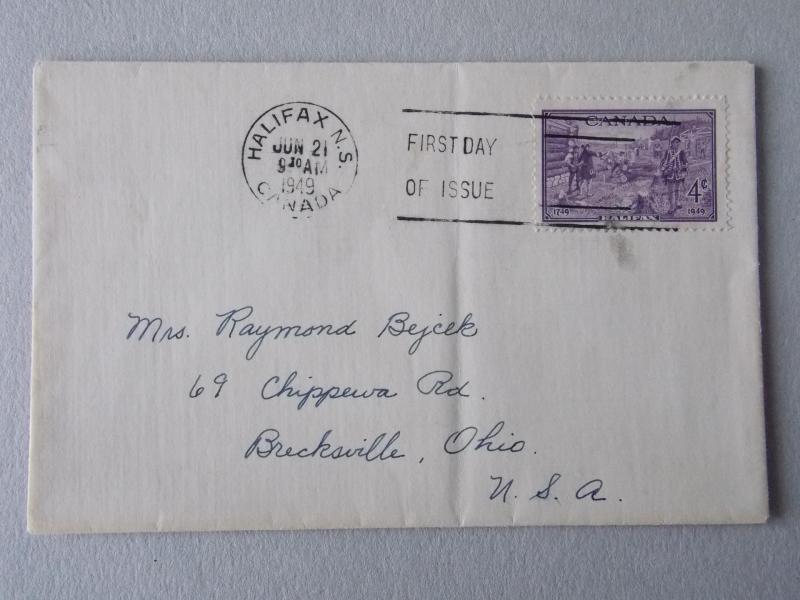 HALIFAX N.S.
JUN 21
9 30 AM
1949
CANADA
FIRST DAY
OF ISSUE
CANADA
4¢
1749 HALIFAX 1949
Mrs. Raymond Bejcek
69 Chippewa Rd.
Brecksville, Ohio.
U. S. A.